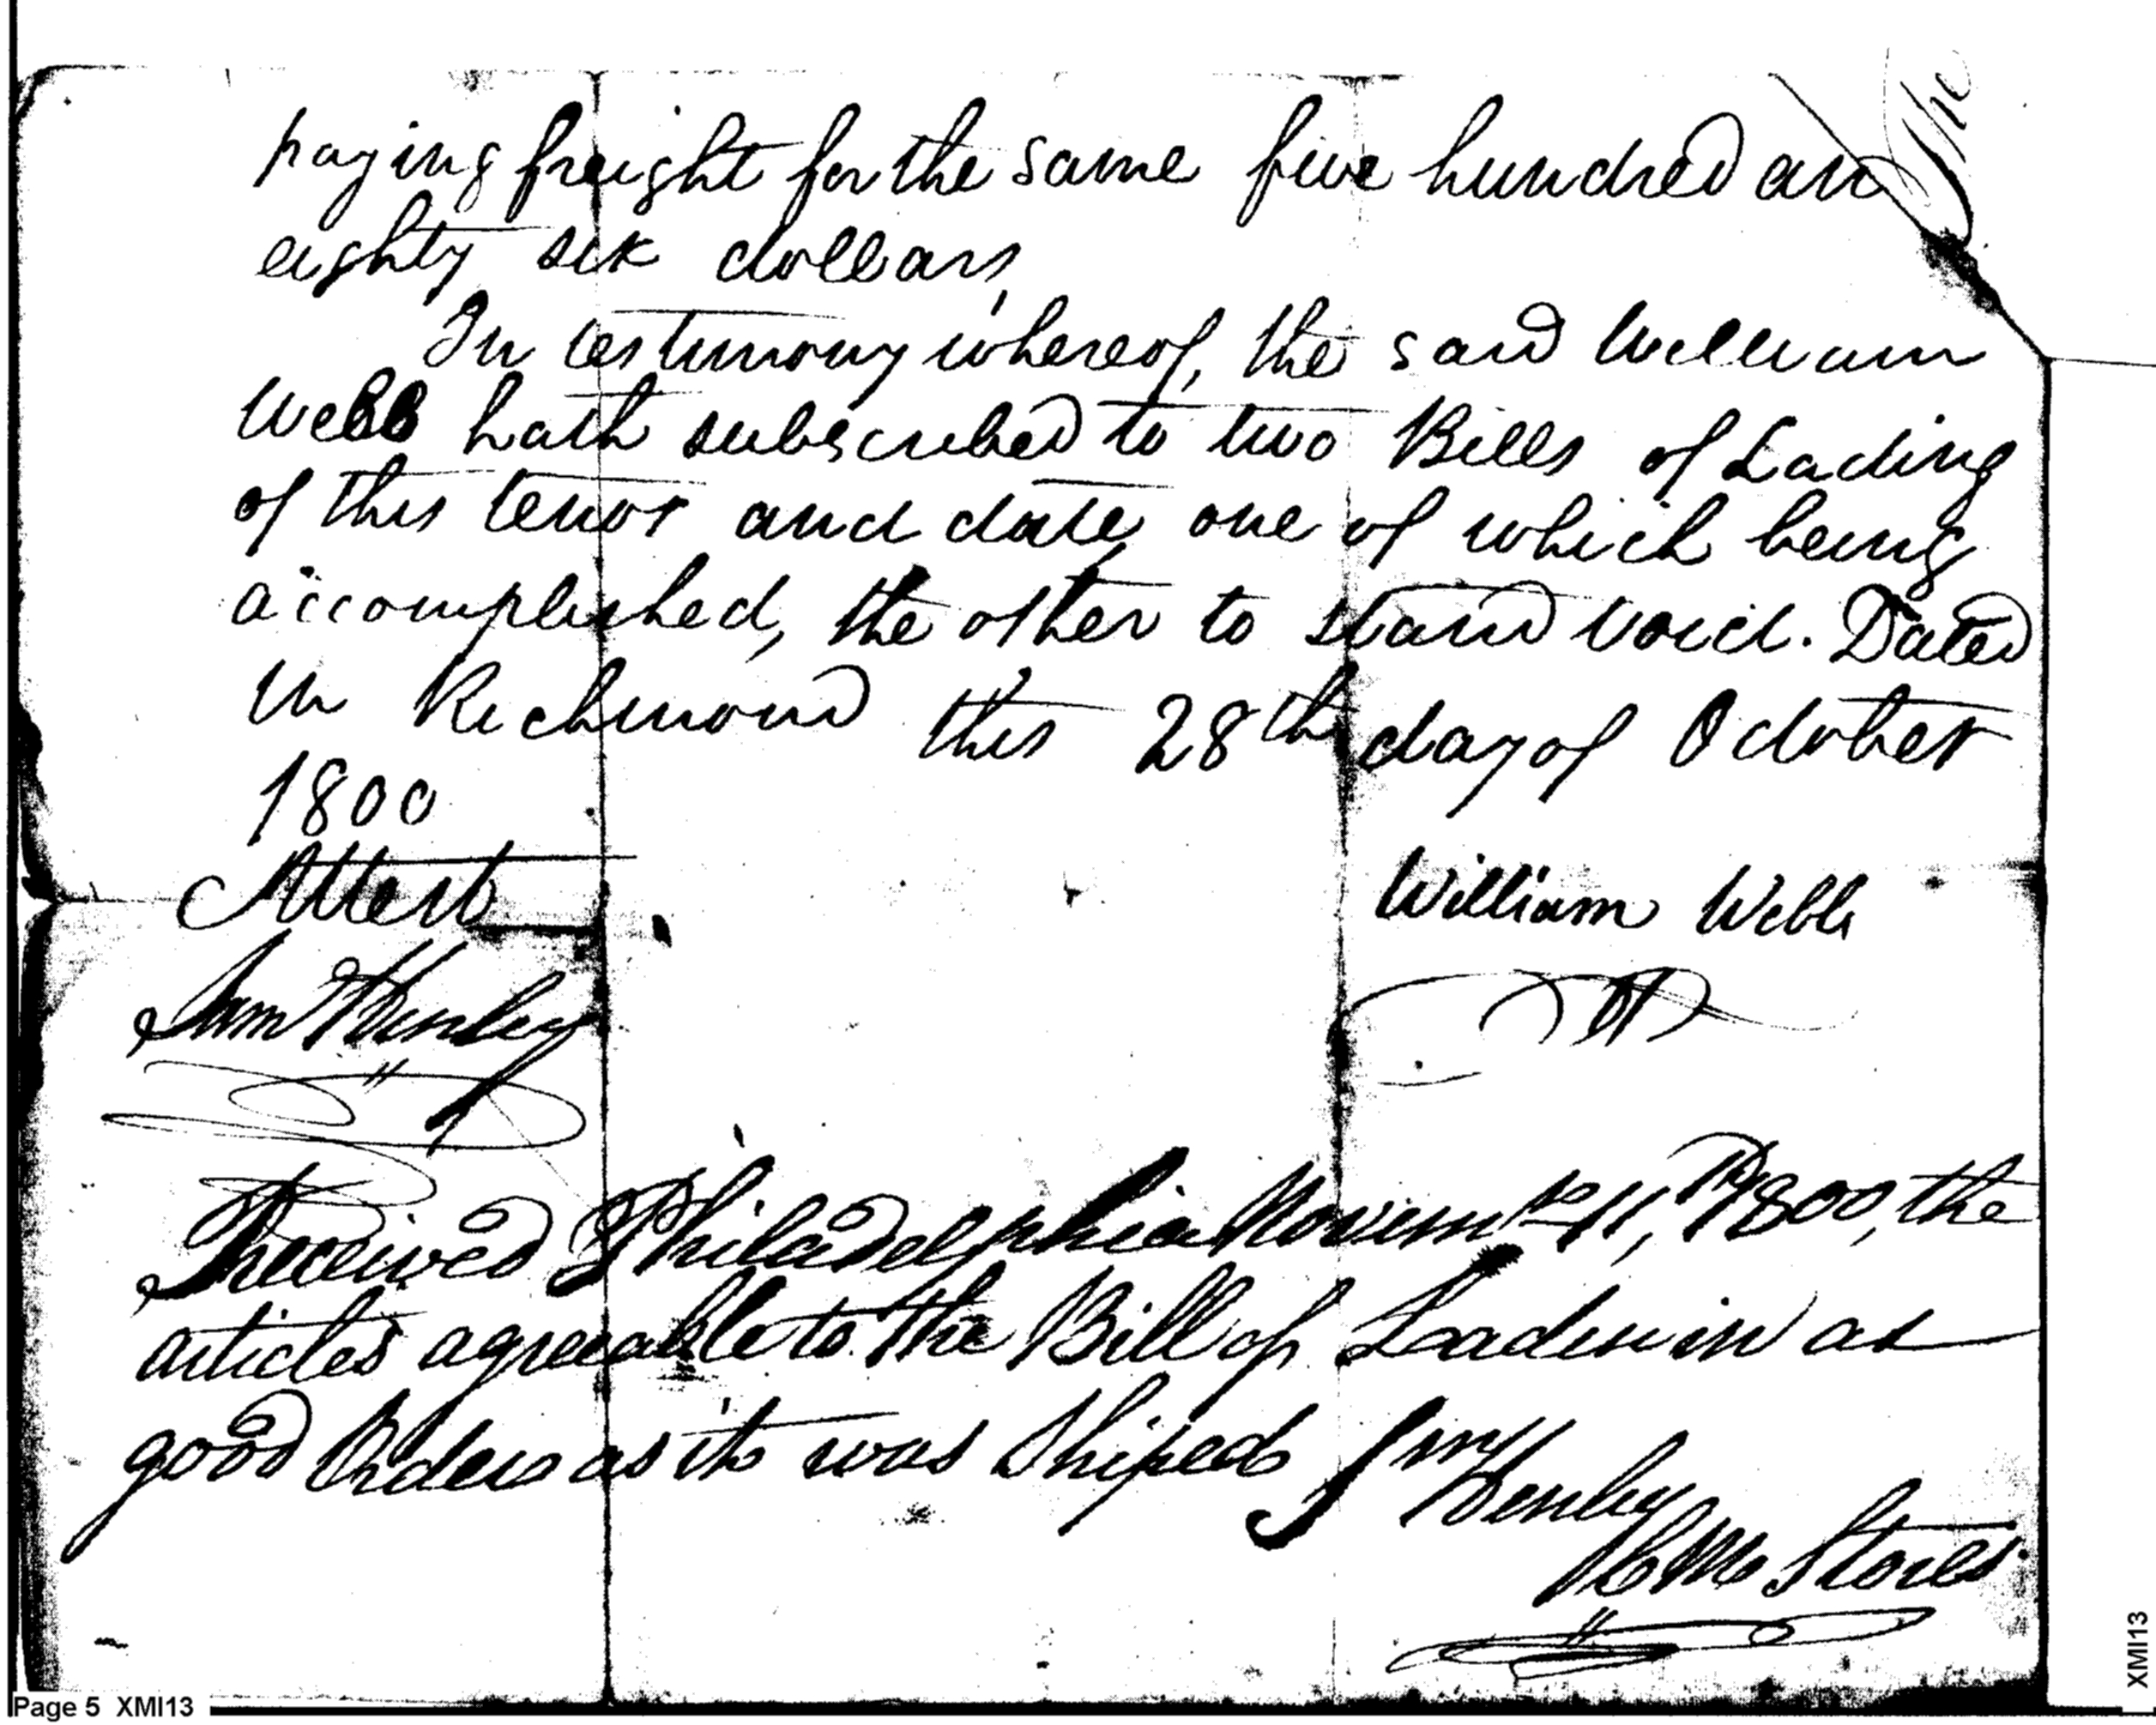 The
paying freight for the same five hundred an
eighty six dollars,
In testimony whereof, the said William
Webb hath subscribed to two Bills of Lading
of this tenor and date, one of which being
accomplished, the other to stand void. Dated
in Richmond this 28th day of October
1800
Attest
William Webb
Sam Henley
Received Philadelphia Novembr 11, 1800, the
articles agreeable to the Bill of Ladein in as
good Order as it was Shiped
Henley
Stores
Page 5 XMI13
XMI13